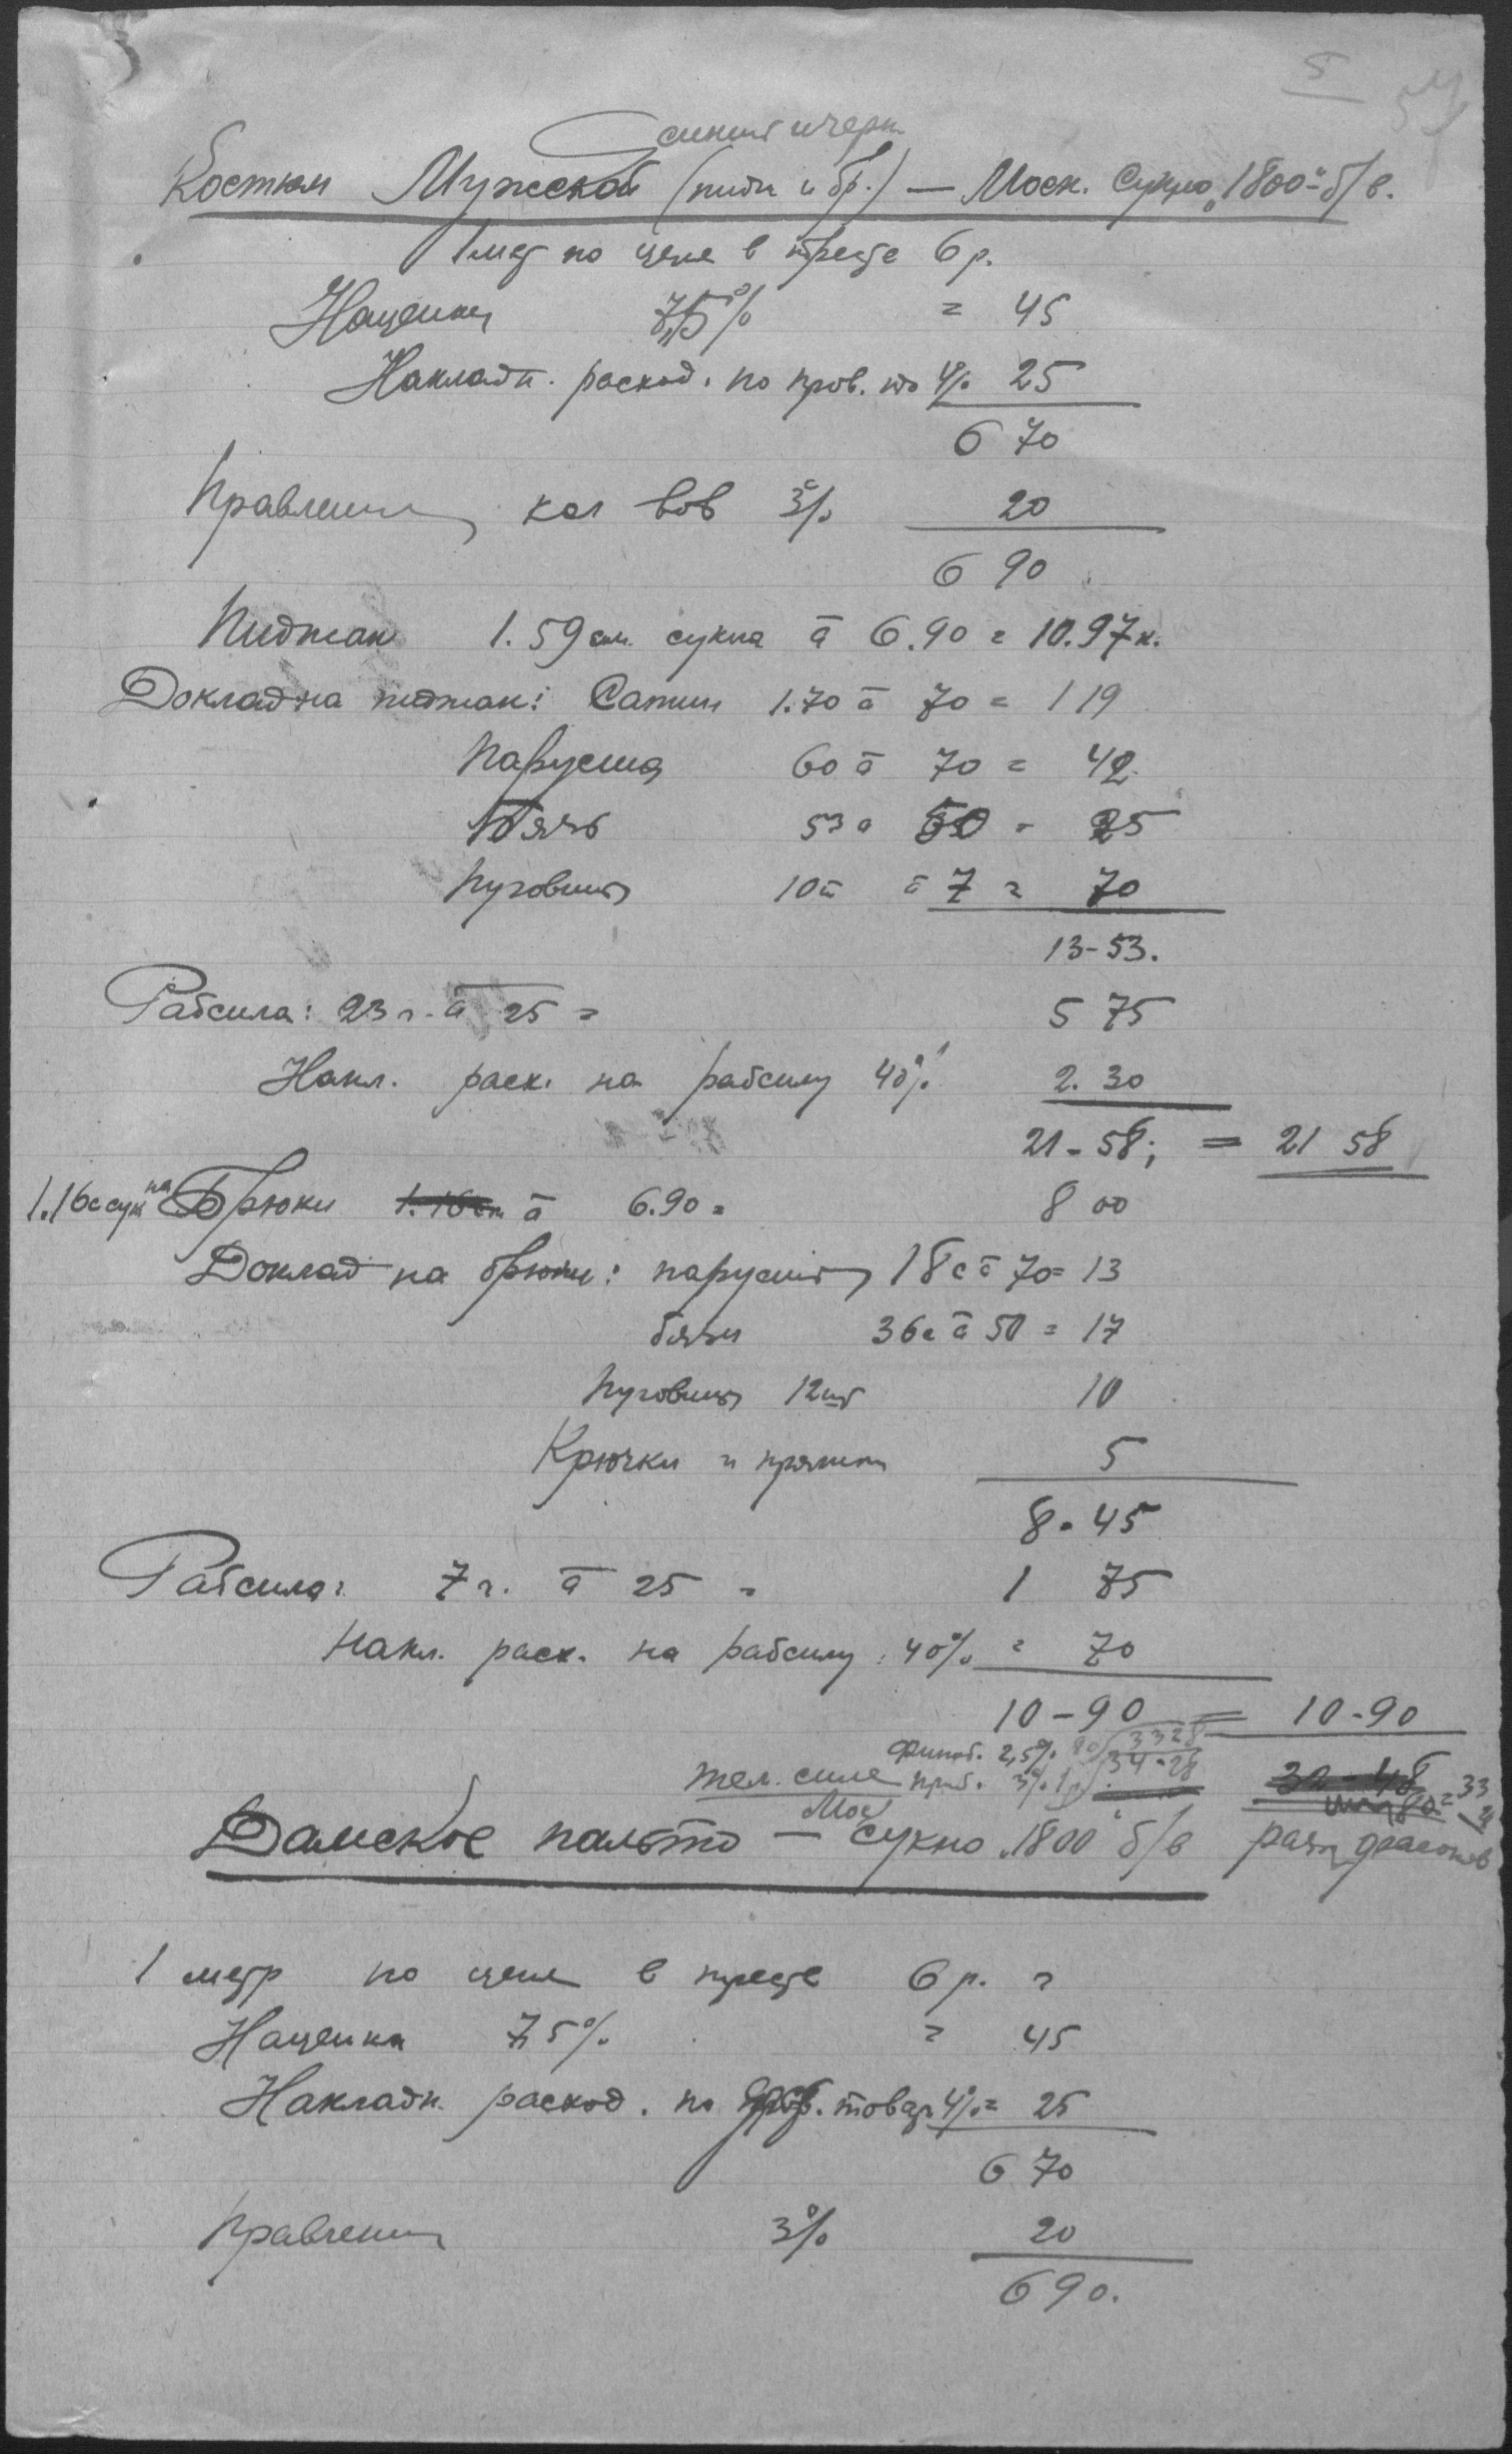 5
синий и черн.
Костюм Мужской (пидж и бр.) — Моск. Сукно 1800 б/в.
1 мет по цене в тресте 6 р.
Наценки 7,5% = 45
Накладн. расход. по пров. 4% 25
6 70
Правления 3% 20
6 90
Пиджак 1.59 см. сукна а 6.90 = 10.97 к.
Доклад на пиджак: Сатин 1.70 а 70 = 1 19
Парусина 60 а 70 = 42
Бязь 53 а 50 = 25
Пуговицы 10 а 7 = 70
13-53.
Рабсила: 23 г. а 25 = 5 75
Накл. расх. на рабсилу 40% 2.30
21-58; = 21 58
1.16 с сук на Брюки 1.16 а 6.90 = 8 00
Доклад на брюки: парусины 18 с а 70 = 13
бязи 36 с а 50 = 17
Пуговиц 12 шт 10
Крючки и пряжки 5
8-45
Рабсила: 7 г. а 25 = 1 75
Накл. расх. на рабсилу 40% = 70
10-90 = 10-90
2,5% 33 28
тем. синее 3% 34-28 32-48 33
Мос
Дамское пальто — сукно 1800 б/в разн фасонов
1 метр по цене в тресте 6 р. =
Наценка 7,5% = 45
Накладн. расход. по товар 4% = 25
6 70
Правления 3% 20
6 90.